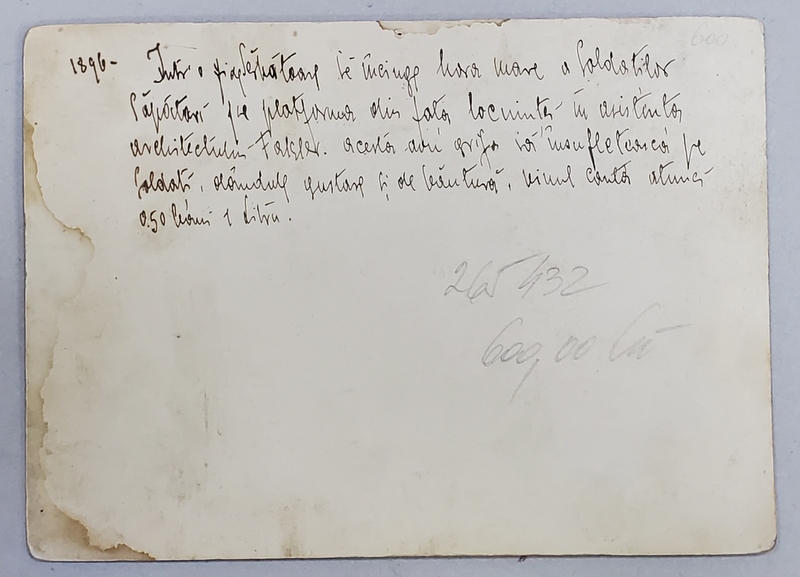 600
1896- Intr o zi sărbătoare se încinge hora mare a soldaților
săpători pe platforma din fața locuintei în asistența
architectului Fakler. acesta avu grija să însuflețească pe
soldați, dându-le gustare și de băutură, vinul costa atunci
0.50 bani 1 Litru.
265432
600,00 Lei